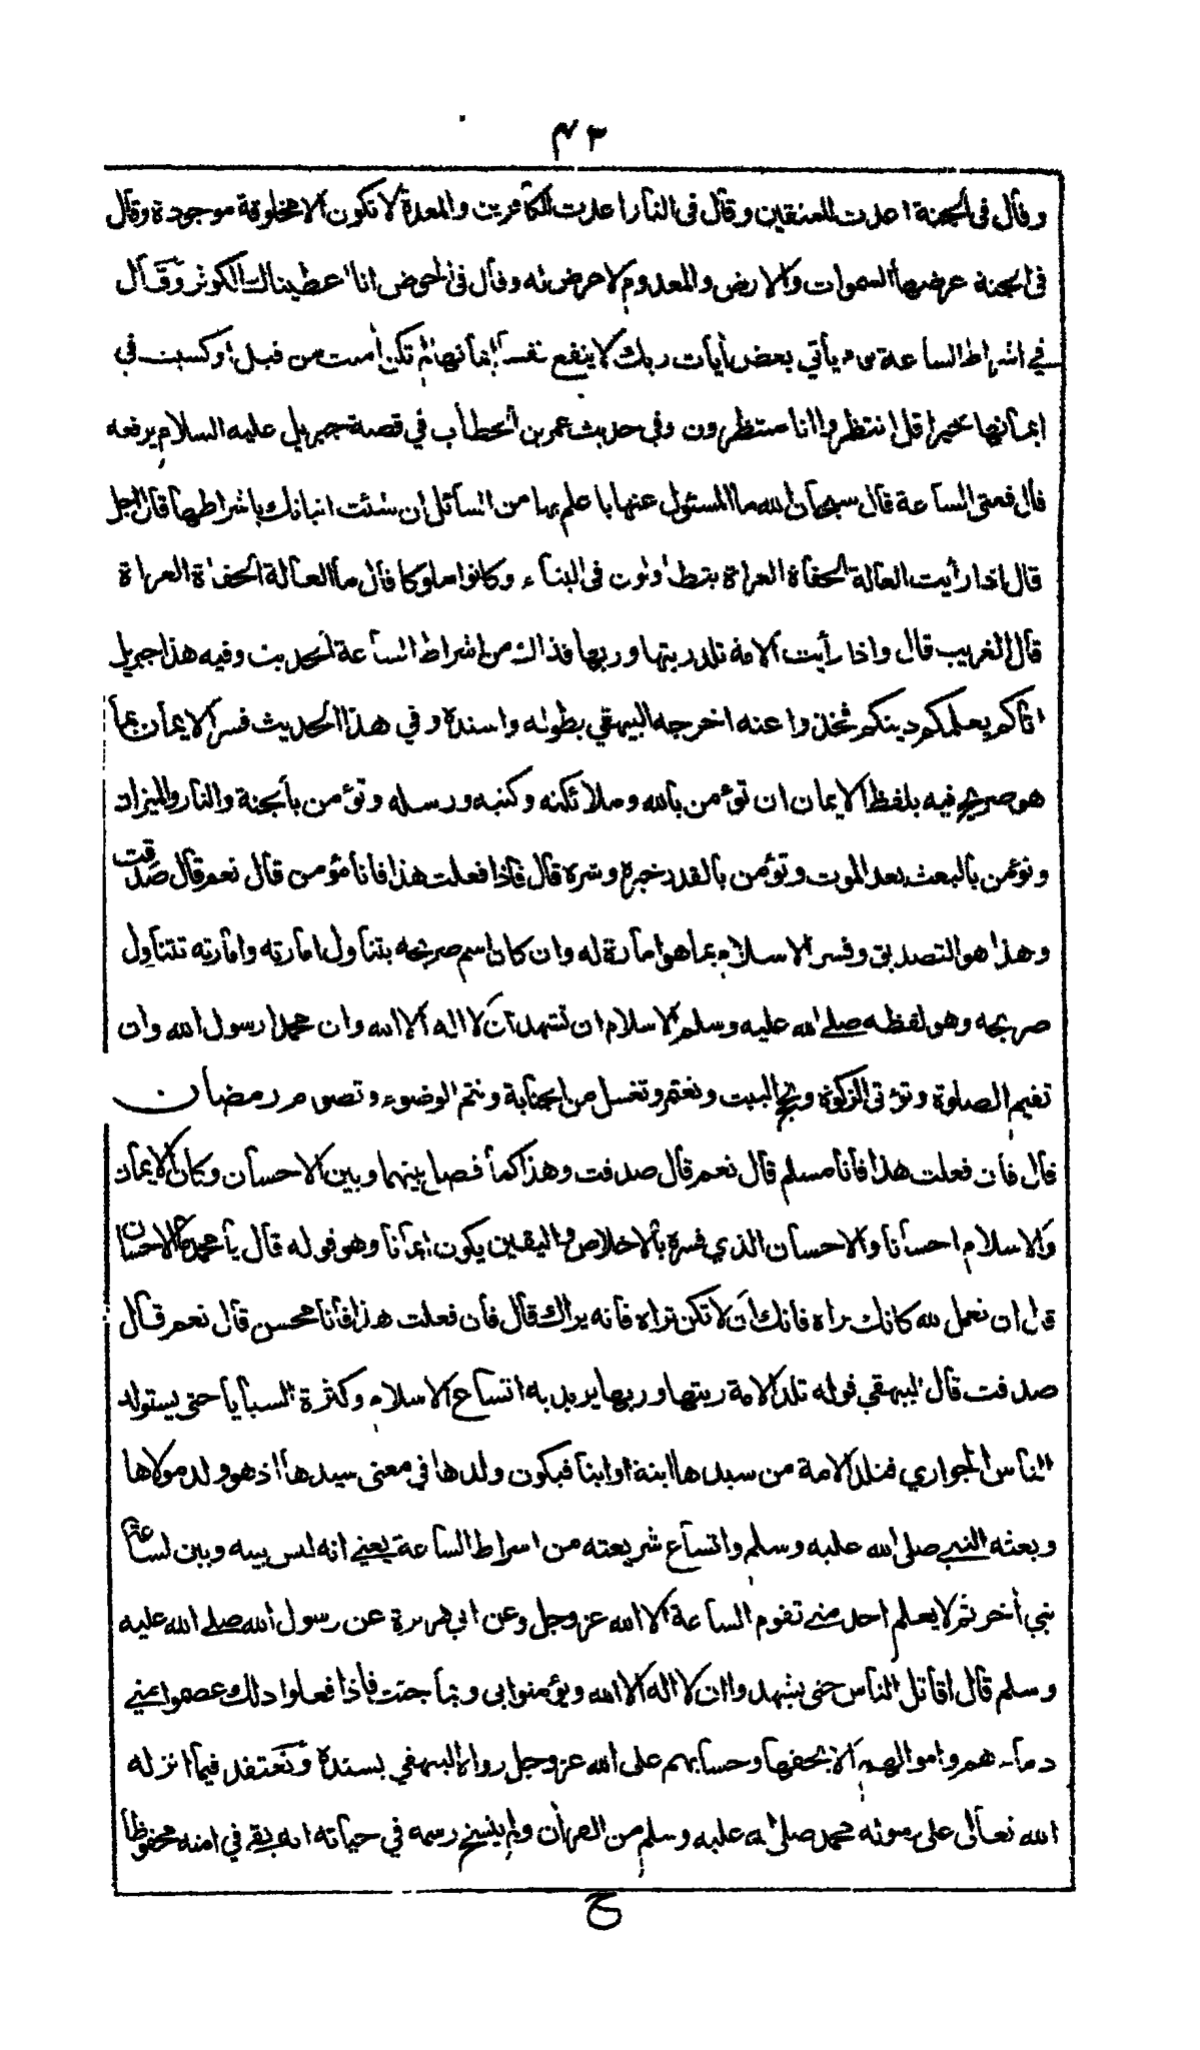 ٤٣
وقال في الجنة اعدت للمتقين وقال في النار اعدت للكافرين والمعدة لا تكون الا مخلوقة موجودة وقال
في الجنة عرضها السموات والارض والمعدوم لا عرض له وقال في الحوض انا اعطيناك الكوثر وقال
في اشراط الساعة يوم يأتي بعض أيات ربك لا ينفع نفسا إيمانها لم تكن أمنت من قبل او كسبت في
ايمانها خيرا قل انتظروا انا منتظرون وفي حديث عمر بن الخطاب في قصة جبريل عليه السلام يرفعه
قال فمتى الساعة قال سبحان الله ما المسئول عنها با علم بها من السائل ان شئت انبانك باشراطها قال اجل
قال اذا رأيت العالة الحفاة العراة يتطاولون في البناء وكانوا ملوكا قال ما العالة الحفاة العراة
قال الغريب قال واذا رأيت الامة تلد ربتها وربها فذاك من اشراط الساعة الحديث وفيه هذا جبريل
اتاكم يعلمكم دينكم فخذوا عنه اخرجه البيهقي بطوله واسنده وفي هذا الحديث فسر الايمان بما
هو صريح فيه بلفظ الايمان ان تؤمن بالله وملائكته وكتبه ورسله وتؤمن بالجنة والنار والميزان
وتؤمن بالبعث بعد الموت وتؤمن بالقدر خيره وشره قال فاذا فعلت هذا فانا مؤمن قال نعم قال صدقت
وهذا هو التصديق وفسر الاسلام بما هو امارة له وان كان اسم صريحه يتناول امارته وامارته تتناول
صريحه وهو لفظه صلى الله عليه وسلم الاسلام ان تشهد ان لا اله الا الله وان محمدا رسول الله وان
تقيم الصلوة وتؤتي الزكوة وتحج البيت وتعتمر وتغسل من الجنابة وتتم الوضوء وتصوم رمضان
قال فان فعلت هذا فانا مسلم قال نعم قال صدقت وهذا كما فصل بينهما وبين الاحسان وكان الايمان
والاسلام احسانا والاحسان الذي فسره بالاخلاص واليقين يكون ايمانا وهو قوله قال يا محمد ما الاحسان
قال ان تعمل لله كانك تراه فانك ان لا تكن تراه فانه يراك قال فان فعلت هذا فانا محسن قال نعم قال
صدقت قال البيهقي قوله تلد الامة ربتها وربها يريد به اتساع الاسلام وكثرة السبايا حتى يستولد
الناس الجواري فتلد الامة من سيدها ابنة او ابنا فيكون ولدها في معنى سيدها اذ هو ولد مولاها
وبعثه النبي صلى الله عليه وسلم واتساع شريعته من اشراط الساعة يعني انه ليس بينه وبين الساعة
نبي أخر ثم لا يعلم احد متى تقوم الساعة الا الله عز وجل وعن ابي هريرة عن رسول الله صلى الله عليه
وسلم قال اقاتل الناس حتى يشهدوا ان لا اله الا الله ويؤمنوا بي وبما جئت فاذا فعلوا ذلك عصموا مني
دماءهم واموالهم الا بحقها وحسابهم على الله عز وجل رواه البيهقي بسنده ونعتقد فيما انزله
الله تعالى على رسوله محمد صلى الله عليه وسلم من القرأن ولم ينسخ رسمه في حياته انه بقي في امته محفوظا
ح